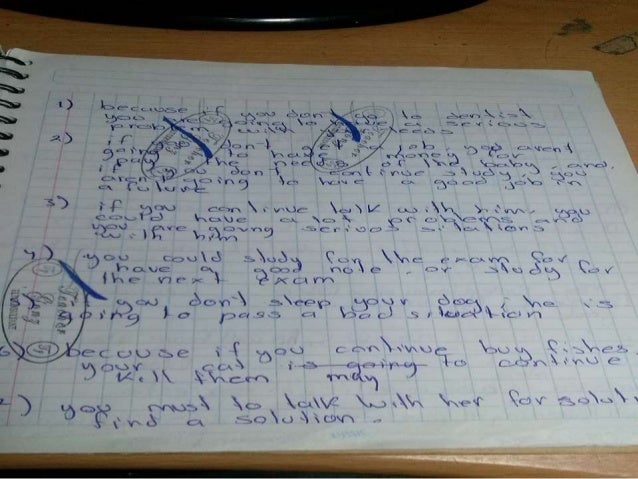 1) because if you don't go to dentist
you problem will be less serious
2) if you don't job you aren't
going to have money for
pay the need of your baby and
if you don't continue study, you
aren't going to have a good job in
a future
3) if you continue talk with him, you
could have a lot problems and
you are going serious sitations
with him
4) you could study for the exam for
have a good note or study for
the next exam
you don't sleep your dog, he is
going to pass a bad situation
6) becouse if you continue buy fishes
your cat is going to continue
may
kill them
you must to talk with her for solut
find a solution.
Teacher